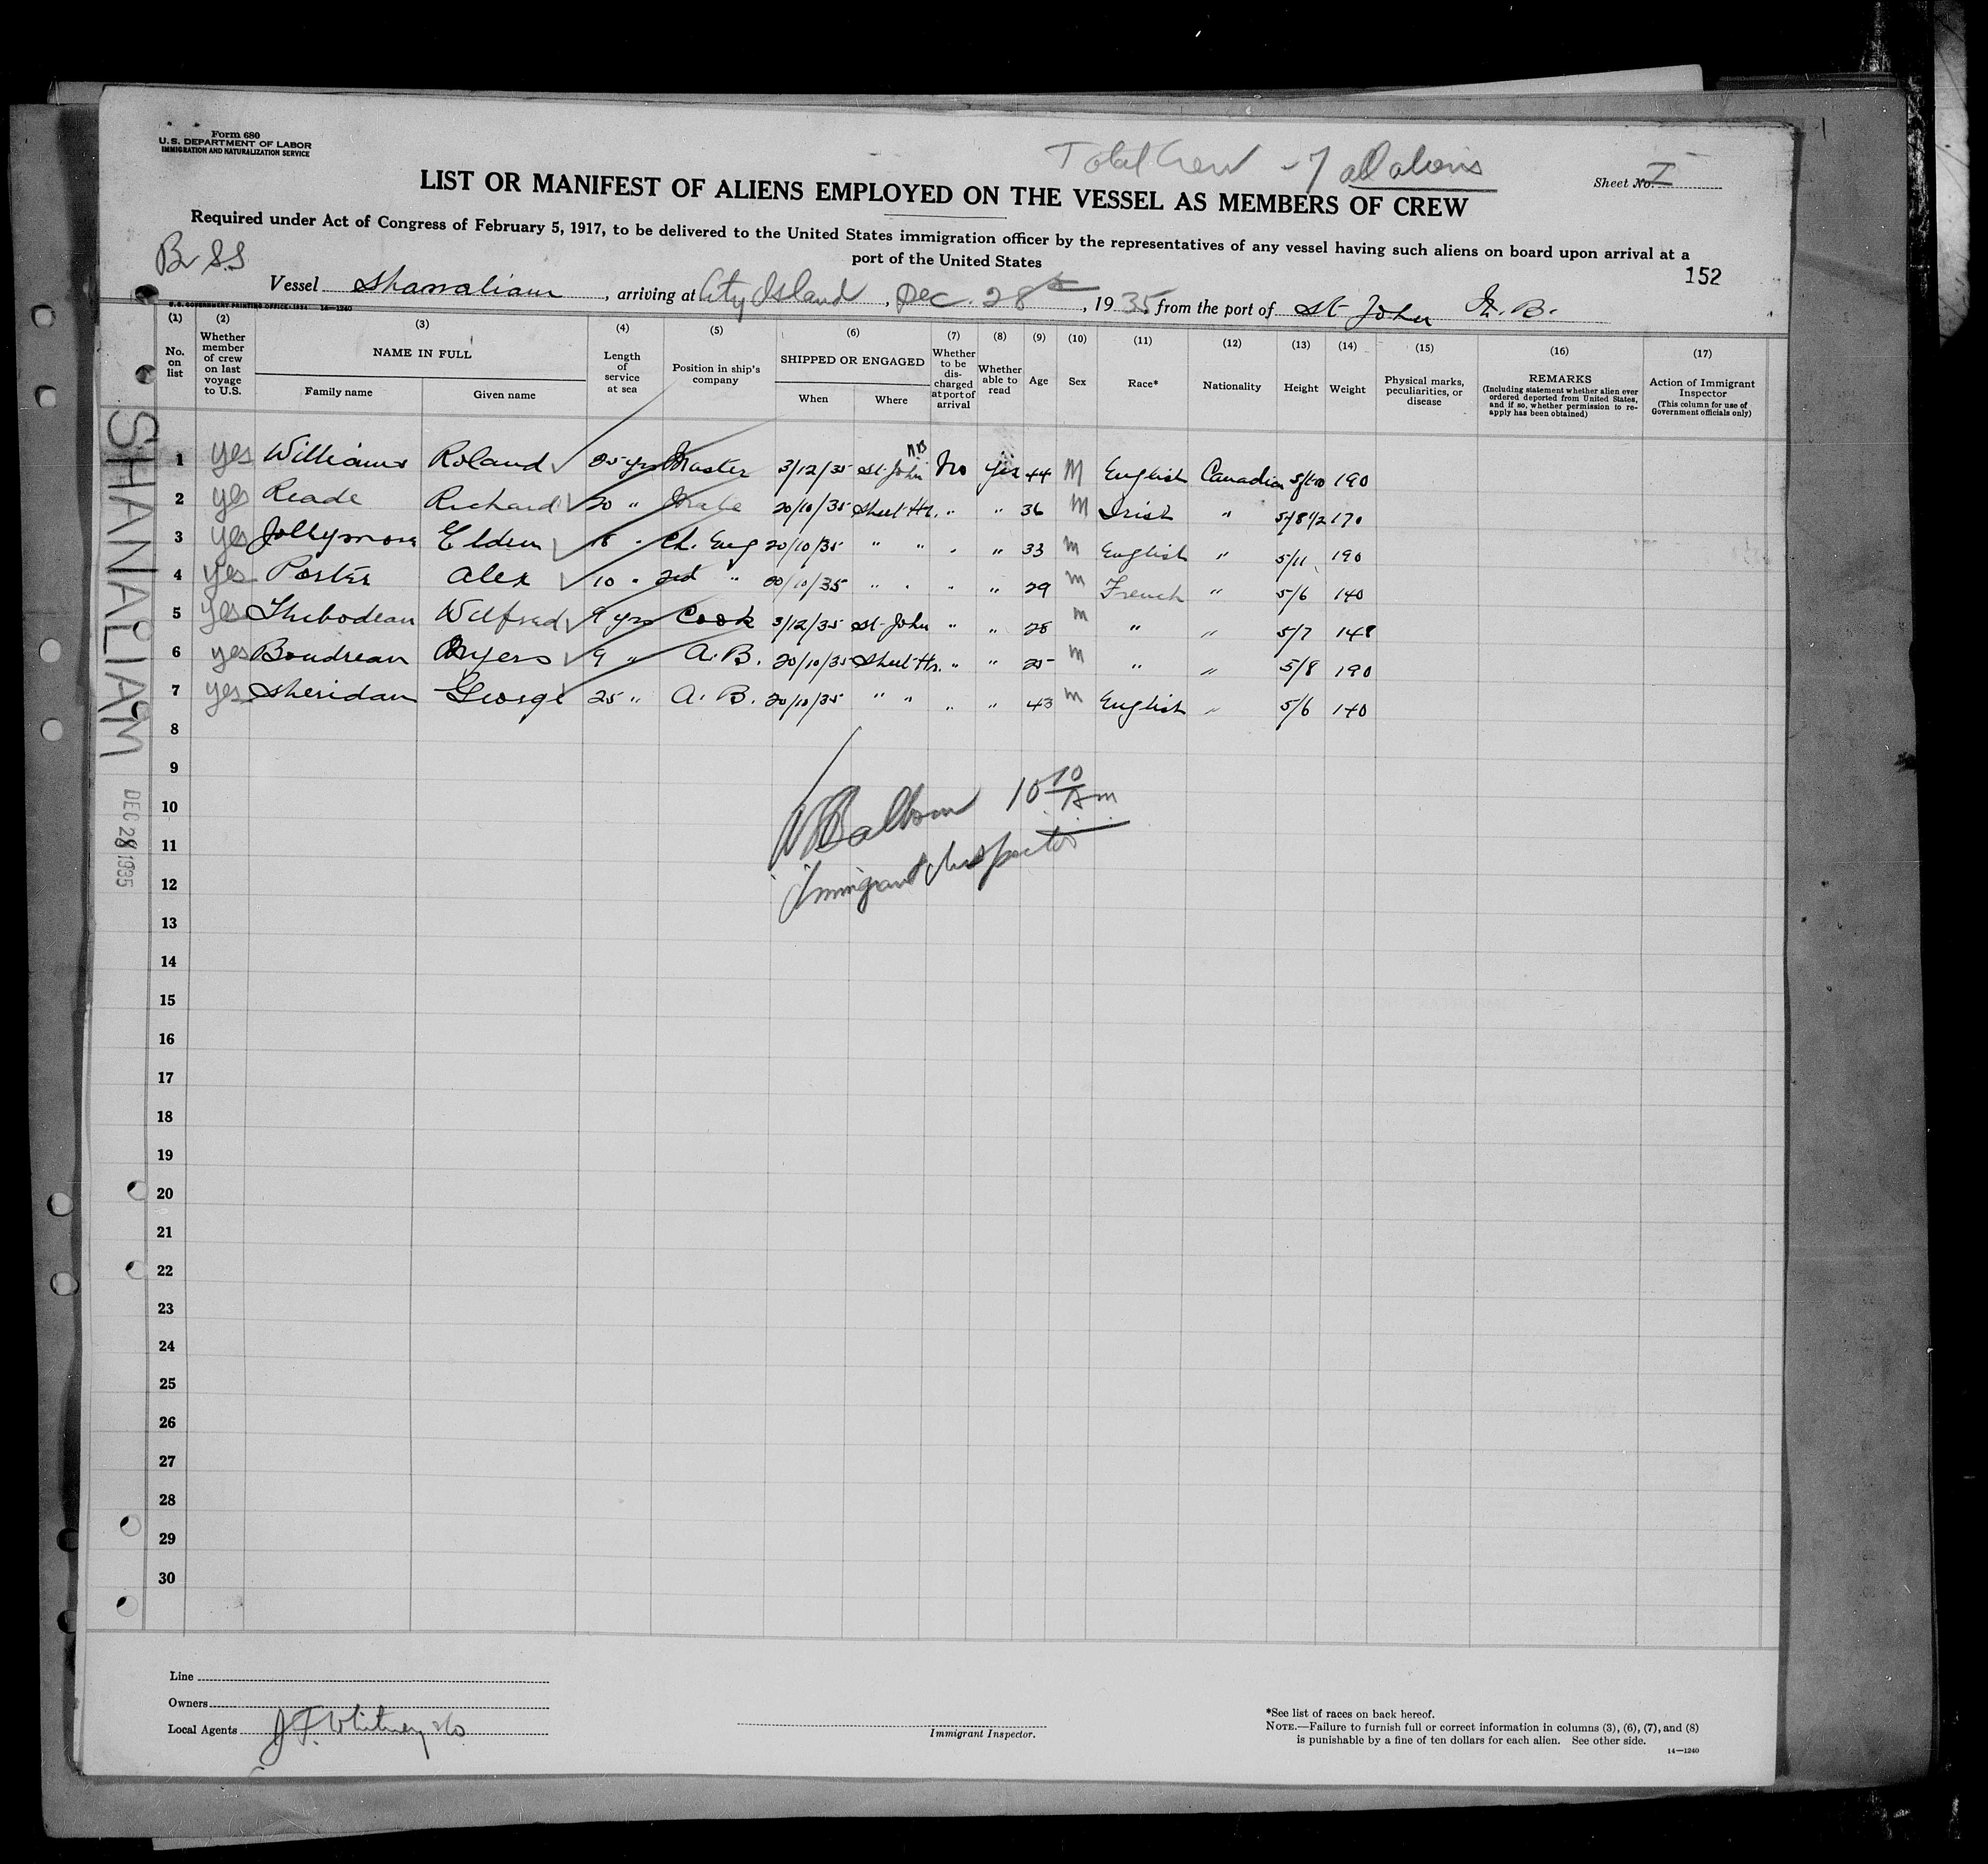 Form 680
U. S. DEPARTMENT OF LABOR
IMMIGRATION AND NATURALIZATION SERVICE
Total Crew - 7 all aliens
Sheet No. I
LIST OR MANIFEST OF ALIENS EMPLOYED ON THE VESSEL AS MEMBERS OF CREW
Required under Act of Congress of February 5, 1917, to be delivered to the United States immigration officer by the representatives of any vessel having such aliens on board upon arrival at a
port of the United States
152
Br SS
Vessel Shanaliam, arriving at City Island, Dec. 28th, 1935 from the port of St John N. B.
U.S. GOVERNMENT PRINTING OFFICE: 1934 14—1240
(1) (2) (3) (4) (5) (6) (7) (8) (9) (10) (11) (12) (13) (14) (15) (16) (17)
No. on list
Whether member of crew on last voyage to U.S.
NAME IN FULL
Family name
Given name
Length of service at sea
Position in ship's company
SHIPPED OR ENGAGED
When
Where
Whether to be discharged at port of arrival
Whether able to read
Age
Sex
Race*
Nationality
Height
Weight
Physical marks, peculiarities, or disease
REMARKS
(Including statement whether alien ever ordered deported from United States, and if so, whether permission to reapply has been obtained)
Action of Immigrant Inspector
(This column for use of Government officials only)
1 yes Williams Roland 25 yrs Master 3/12/35 St. John NB No yes 44 M English Canadian 5/10 190
2 yes Reade Richard 20 " Mate 20/10/35 Sheet Hr. " " 36 M Irish " 5/8 1/2 170
3 yes Jollymore Eldon 15 " Ch. Eng 20/10/35 " " " " 33 M English " 5/11 190
4 yes Porter Alex 10 " 2nd " 20/10/35 " " " " 29 M French " 5/6 140
5 yes Thebodeau Wilfred 9 yrs Cook 3/12/35 St. John " " 28 M " " 5/7 148
6 yes Boudreau 9 " A. B. 20/10/35 Sheet Hr. " " 25 M " " 5/8 190
7 yes Sheridan George 25 " A. B. 20/10/35 " " " " 43 M English " 5/6 140
8
9
10
11
12
13
14
15
16
17
18
19
20
21
22
23
24
25
26
27
28
29
30
SHANALIAM
DEC 28 1935
10 10 Am
Immigrant Inspector
Line
Owners
Local Agents J F. Whitney Co
Immigrant Inspector.
*See list of races on back hereof.
NOTE.—Failure to furnish full or correct information in columns (3), (6), (7), and (8)
is punishable by a fine of ten dollars for each alien. See other side.
14—1240